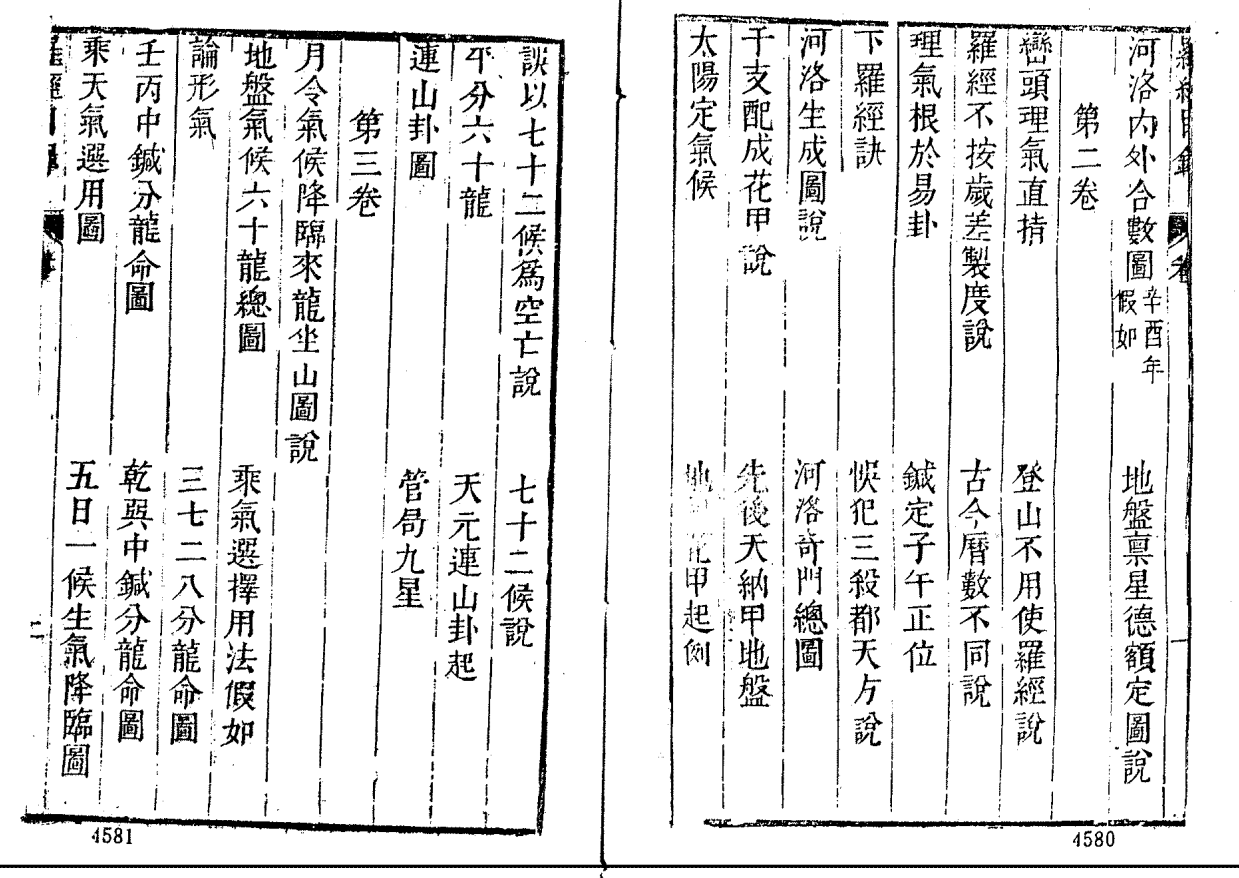 河洛內外合數圖 假如辛酉年 地盤禀星德額定圖說
第二卷
巒頭理氣直指 登山不用使羅經說
羅經不按歲差製度說 古今曆數不同說
理氣根於易卦 鍼定子午正位
下羅經訣 悞犯三殺都天方說
河洛生成圖說 河洛奇門總圖
干支配成花甲說 先後天納甲地盤
太陽定氣候 地 花甲起例
4580
誤以七十二候爲空亡說 七十二候說
平分六十龍 天元連山卦起
連山卦圖 管局九星
第三卷
月令氣候降臨來龍坐山圖說
地盤氣候六十龍總圖 乘氣選擇用法假如
論形氣 三七二八分龍命圖
壬丙中鍼分龍命圖 乾巽中鍼分龍命圖
乘天氣選用圖 五日一候生氣降臨圖
二
4581